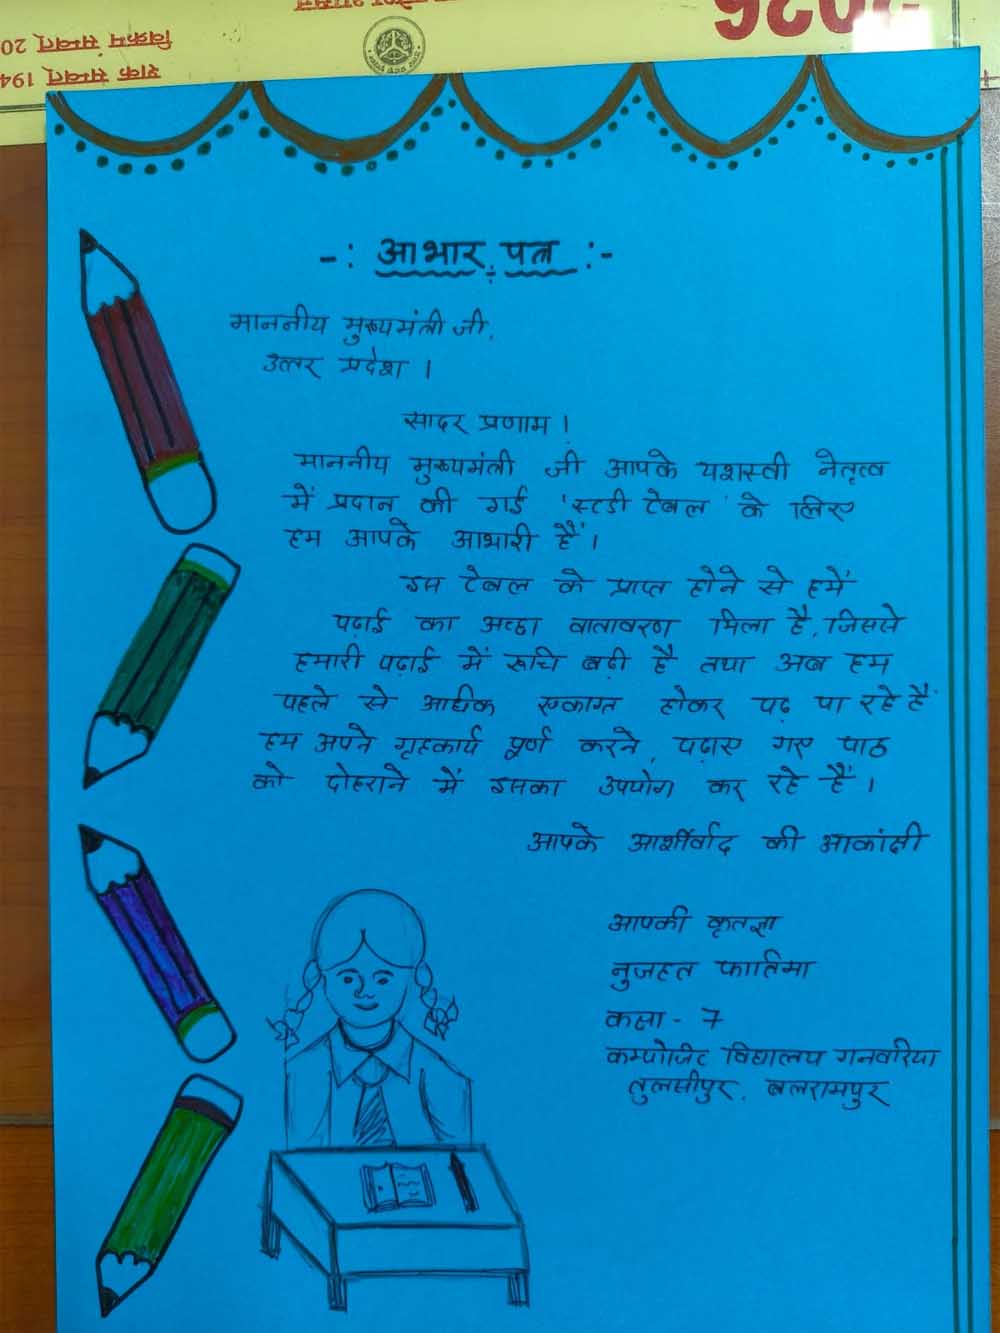 2026
विक्रम सम्वत् 20
शक सम्वत् 194
-: आभार पत्र :-
माननीय मुख्यमंत्री जी,
उत्तर प्रदेश ।
सादर प्रणाम !
माननीय मुख्यमंत्री जी आपके यशस्वी नेतृत्व
में प्रदान की गई 'स्टडी टेबल' के लिए
हम आपके आभारी हैं ।
इस टेबल के प्राप्त होने से हमें
पढ़ाई का अच्छा वातावरण मिला है, जिससे
हमारी पढ़ाई में रूचि बढ़ी है तथा अब हम
पहले से अधिक एकाग्र होकर पढ़ पा रहे हैं
हम अपने गृहकार्य पूर्ण करने, पढ़ाए गए पाठ
को दोहराने में इसका उपयोग कर रहे हैं ।
आपके आर्शीर्वाद की आकांक्षी
आपकी कृतज्ञा
नुजहत फातिमा
कक्षा - 7
कम्पोजिट विद्यालय गनवरिया
तुलसीपुर, बलरामपुर